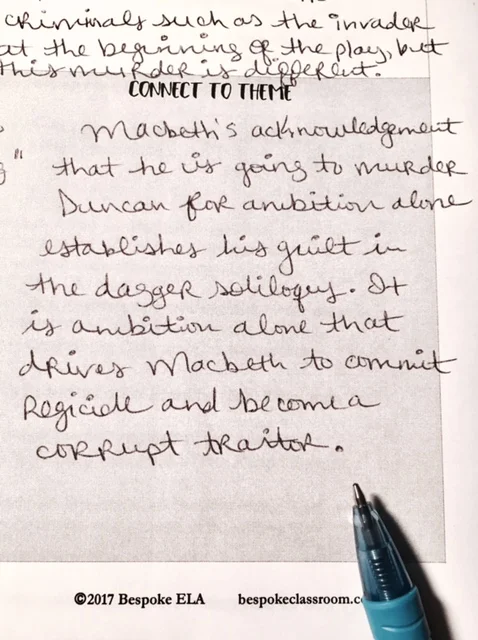 criminals such as the invader
at the beginning of the play, but
this murder is different.
CONNECT TO THEME
"
Macbeth's acknowledgement
that he is going to murder
Duncan for ambition alone
establishes his guilt in
the dagger soliloquy. It
is ambition alone that
drives Macbeth to commit
Regicide and become a
corrupt traitor.
©2017 Bespoke ELA bespokeclassroom.c